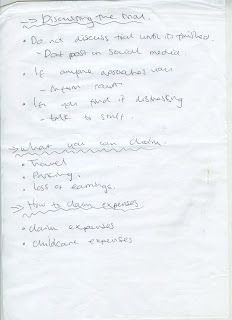 → Discussing the trial.
• Do not discuss trial until it finished
- Dont post on social media.
• If anyone approaches you
- Inform court
• If you find it distressing
- talk to staff.
→ What you can claim.
• Travel
• Parking.
• Loss of earnings.
→ How to claim expenses
• claim expenses
• childcare expenses